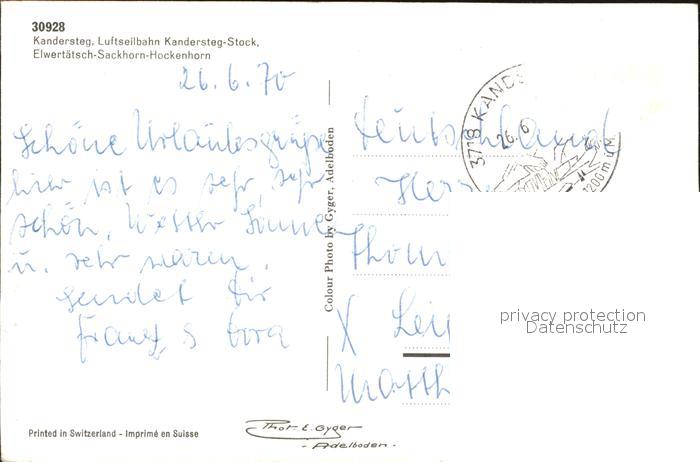 30928
Kandersteg, Luftseilbahn Kandersteg-Stock,
Elwertätsch-Sackhorn-Hockenhorn
26.6.70
Schöne Urlaubsgrüße
hier ist es sehr, sehr
schön, Wetter Sonne
u. sehr warm.
sendet Dir
Colour Photo by Gyger, Adelboden
3718 KANDE
26. 6
1200 m ü M
Deutschland
Herr
Thom
X Lei
Matth
privacy protection
Datenschutz
Printed in Switzerland - Imprimé en Suisse
Phot. E. Gyger
- Adelboden -